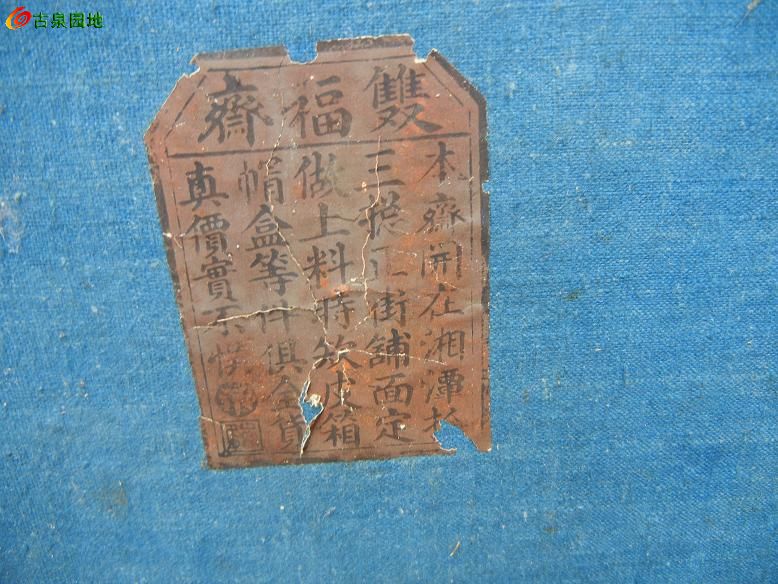 古泉园地
雙福齋
本齋開在湘潭
三搃正街舖面定
做上料時欵皮箱
帽盒等件俱全貨
真價實不悞